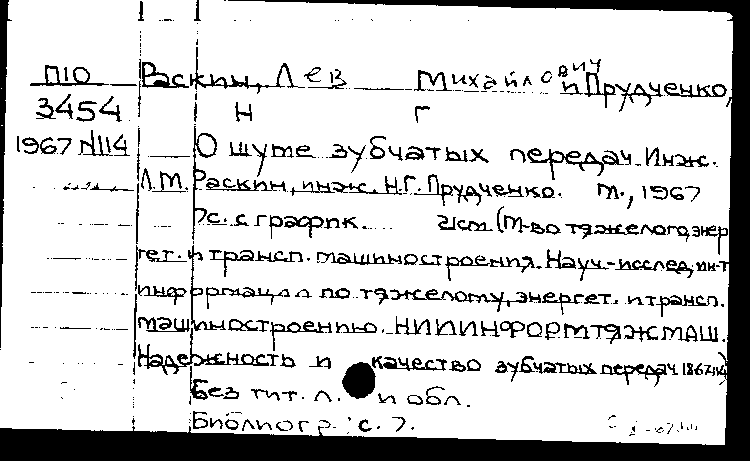 П10 Раскин, Лев Михайлович и Прудченко,
3454 Н Г
1967 N114 О шуме зубчатых передач. Инж.
Л.М. Раскин, инж. Н.Г. Прудченко. М., 1967
7с. с график. 21см (М-во тяжелого, энер
гет. и трансп. машиностроения. Науч.-исслед, ин-т
информации по тяжелому, энергет. и трансп.
машиностроению. НИИИНФОРМТЯЖМАШ.
Надежность и качество зубчатых передач
Без тит. л. и обл.
Библиогр.: с. 7.